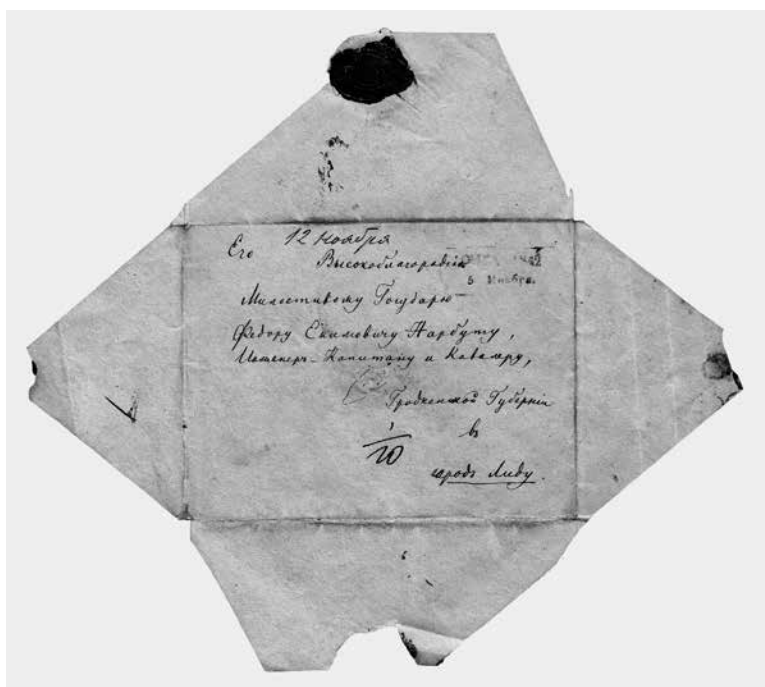 12 Ноября
Его
Высокоблагородію
5 Ноября.
Милостивому Государю
Федору Екимовичу Нарбуту,
Инженеръ-Капитану и Кавалеру,
Гродненской Губерніи
въ
городъ Лиду.
1/10